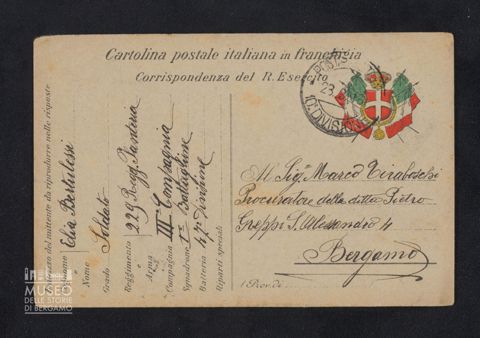 Cartolina postale italiana in franchigia
Corrispondenza del R. Esercito
POSTA
23
DIVISIONE
del mittente da riprodurre nelle risposte
Cognome Elia Bertulessi
Nome
Grado Soldato
Reggimento 229 Regg. Fanteria
Arma
Compagnia III Compagnia
Squadrone 1º Battaglione
Batteria 47ª Divisione
Riparti speciali
Al Sigr Marco Tiraboschi
Procuratore della ditta Pietro
Greppi S. Alessandro 4
Bergamo
(Prov. di
MUSEO
DELLE STORIE
DI BERGAMO